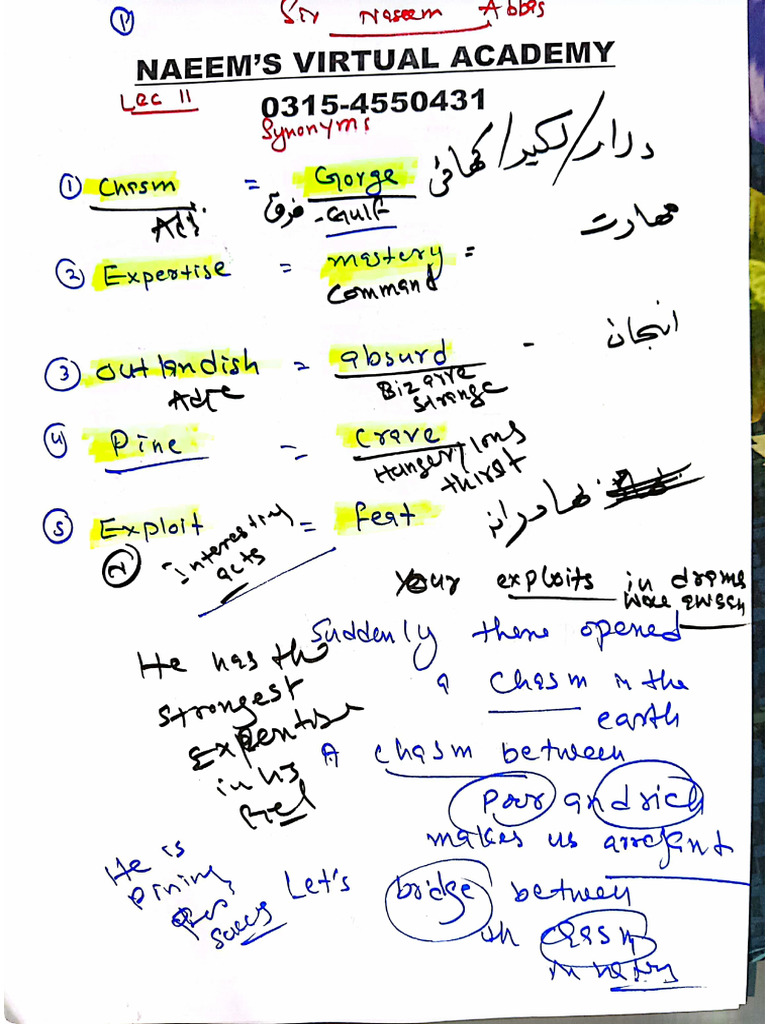 1
Sir Naseem Abbas
NAEEM'S VIRTUAL ACADEMY
Lec 11
0315-4550431
Synonyms
① Chasm = Gorge دراڑ/لکیر/کھائی
Adj. فرق - Gulf
② Expertise = mastery = مہارت
Command
③ outlandish = absurd - انجان
Bizarre
Strange
④ Pine = Crave
Hunger/long
thirst
⑤ Exploit = feat
N Interesting
acts
Your exploits in drams
Suddenly there opened
a chasm in the
earth
He has the
strongest
Expertise
in his
A chasm between
poor and rich
makes us
He is
pining
Let's bridge between
chasm